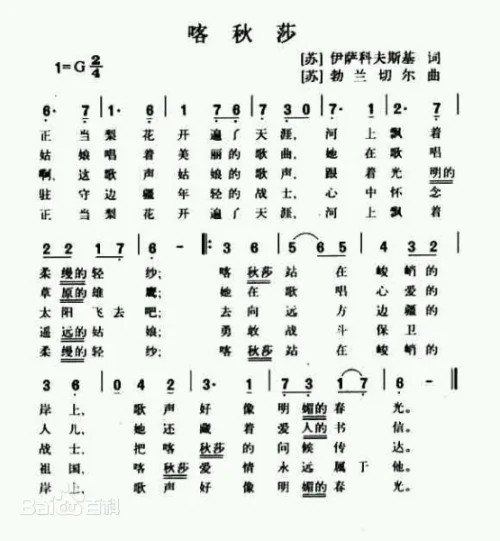 喀秋莎
[苏] 伊萨科夫斯基 词
1=G 2/4
[苏] 勃兰切尔 曲
6· 7 | 1· 6 | 1 1 7 6 | 7 3 0 | 7· 1 | 2· 7 |
正当梨花开遍了天涯,河上飘着
姑娘唱着美丽的歌曲,她在歌唱
啊,这歌声姑娘的歌声,跟着光明的
驻守边疆年轻的战士,心中怀念
正当梨花开遍了天涯,河上飘着
2 2 1 7 | 6· - |: 3 6 | 5 6 5 | 4 4 3 2 |
柔缦的轻纱;喀秋莎站在峻峭的
草原的雄鹰;她在歌唱心爱的
太阳飞去吧;去向远方边疆的
遥远的姑娘;勇敢战斗保卫
柔缦的轻纱;喀秋莎站在峻峭的
3 6 | 0 4 2 | 3· 1 | 7 3 1 7 | 6 - :|
岸上,歌声好像明媚的春光。
人儿,她还藏着爱人的书信。
战士,把喀秋莎的问候传达。
祖国,喀秋莎爱情永远属于他。
岸上,歌声好像明媚的春光。
Baidu百科